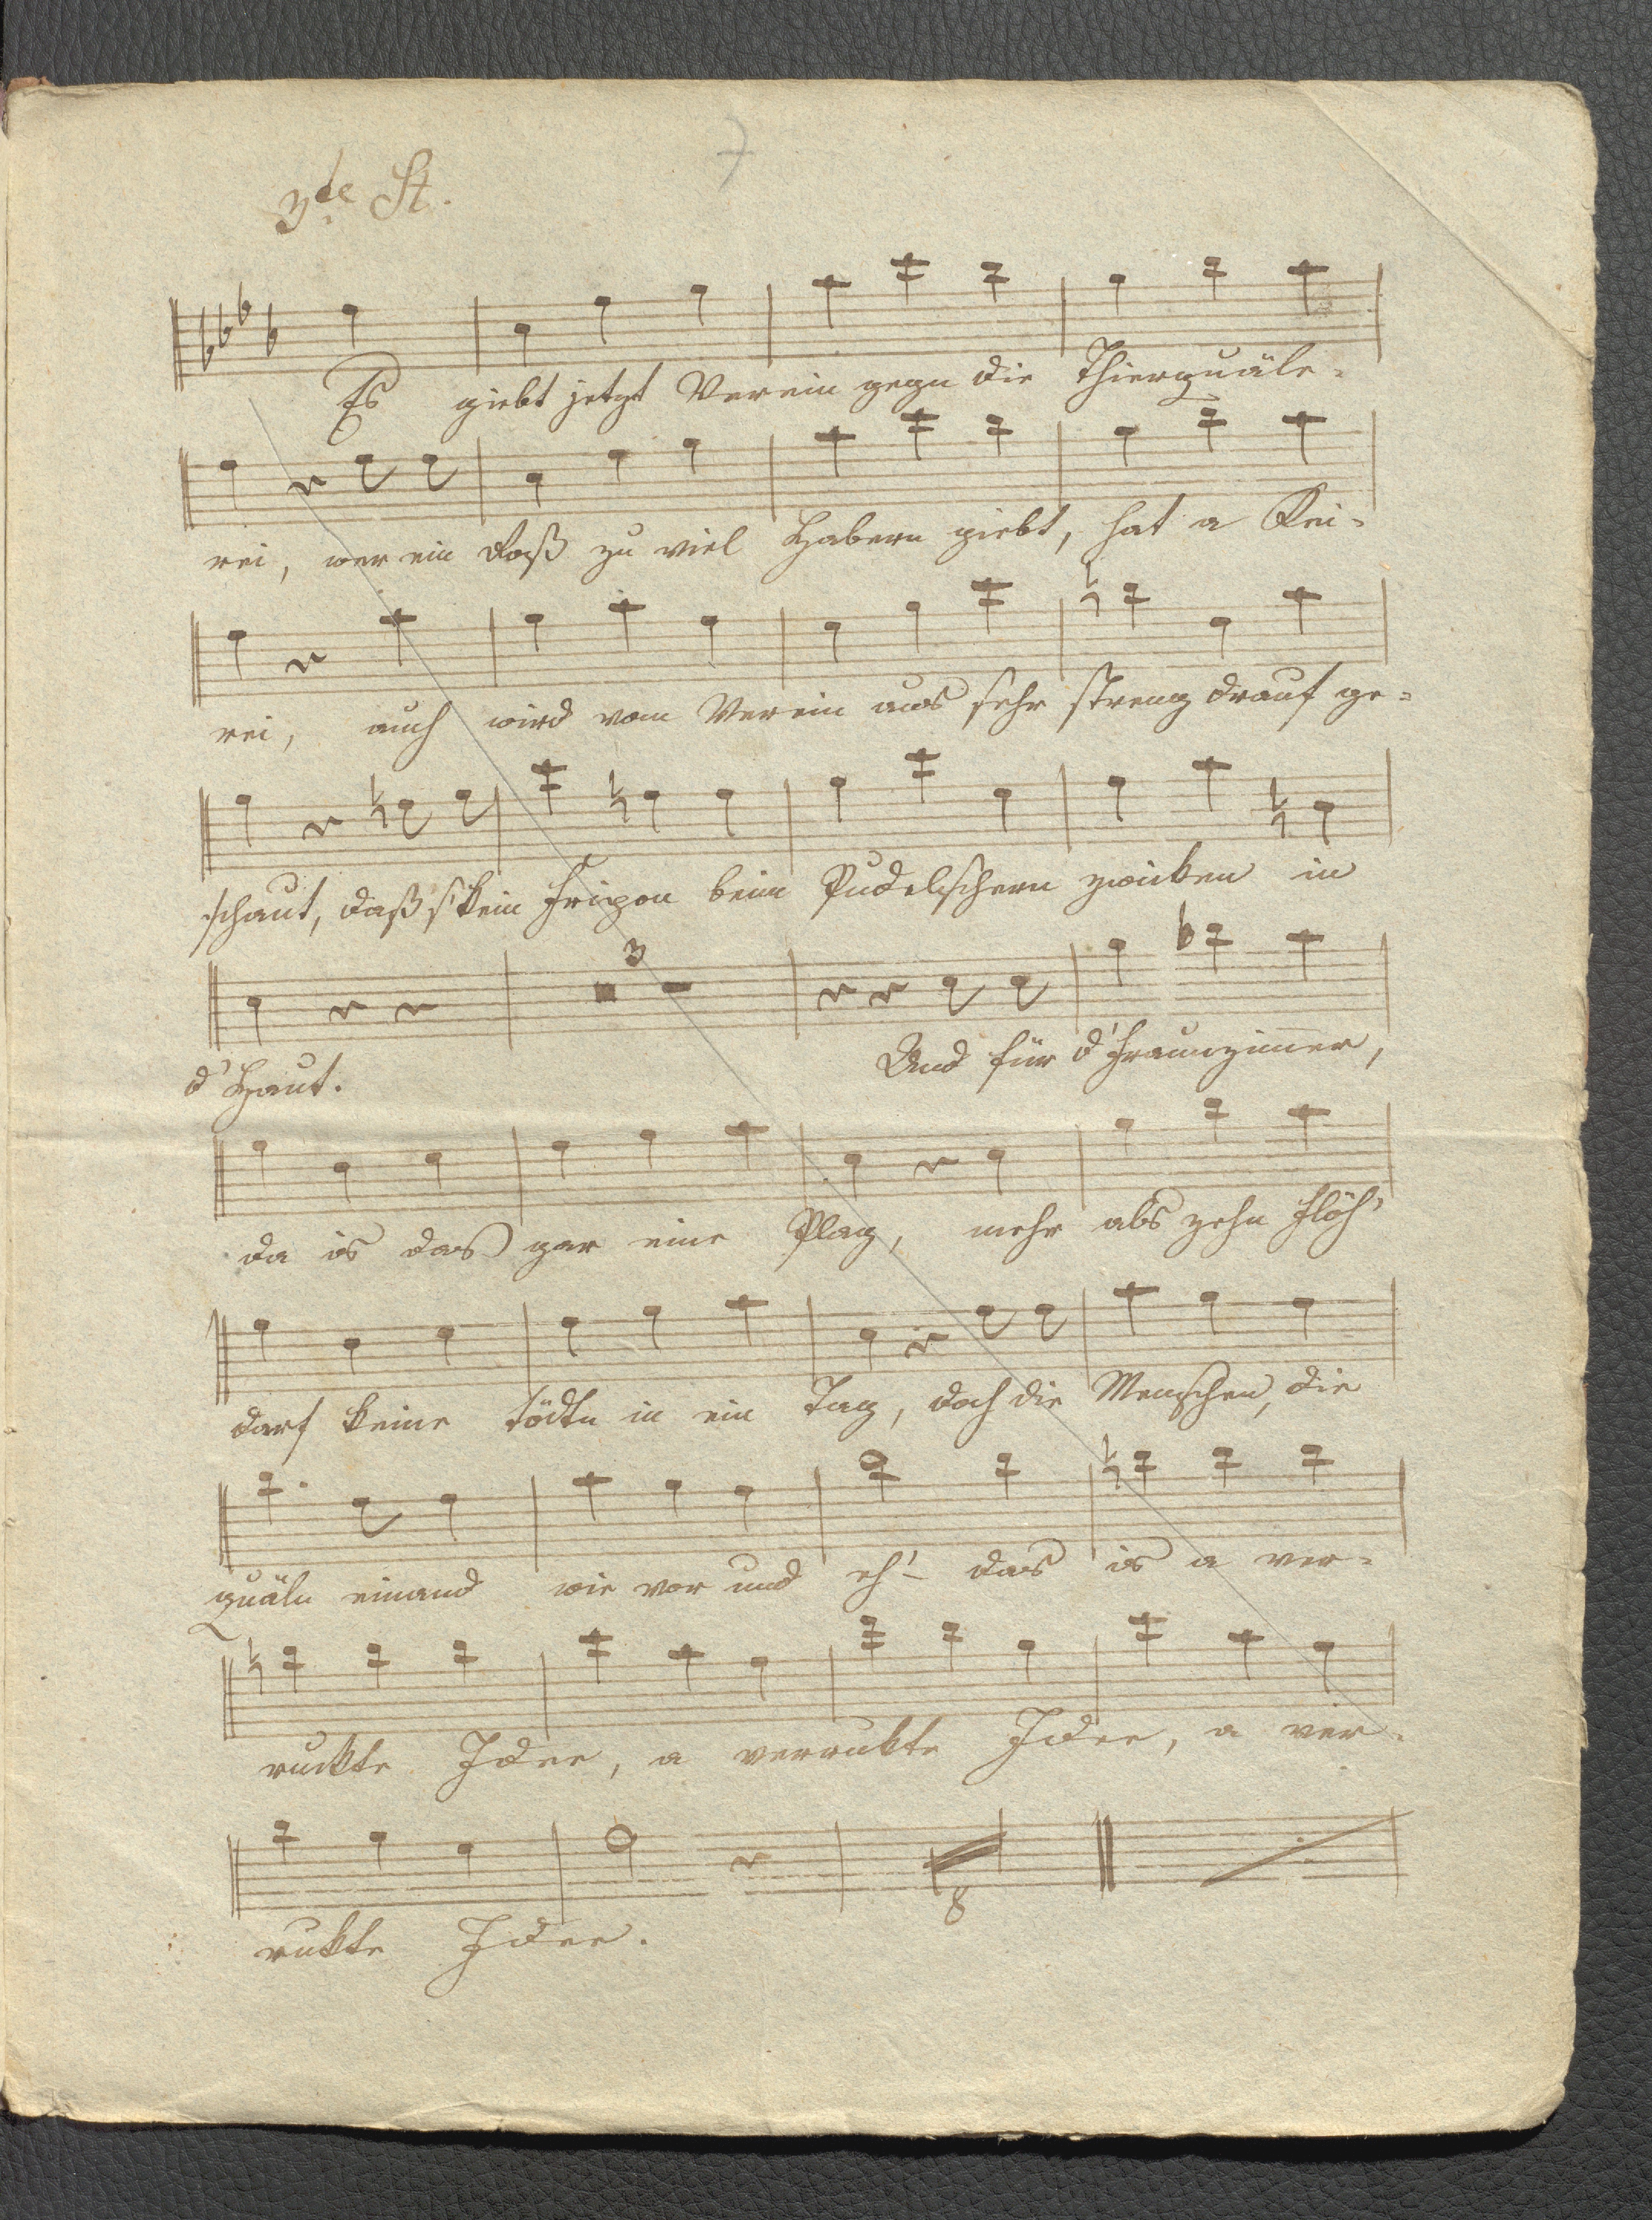 7
3te St.
Es giebt jetzt Verein gegn die Thierquäle-
rei, wer ein Roß zu viel Habern giebt, hat a Kei-
rei, auch wird vom Verein aus sehr streng drauf ge-
schaut, daß s' kein Fripon beim Pudelschern zwicken in
3
d'Haut. Und für d'Frauenzimer,
da is das gar eine Plag, mehr als zehn Flöh'
darf keine tödtn in ein Tag, doch die Menschen, die
quäln einand wie vor und eh'- das is a ver-
ruckte Idee, a verrukte Idee, a ver-
8
rukte Idee.